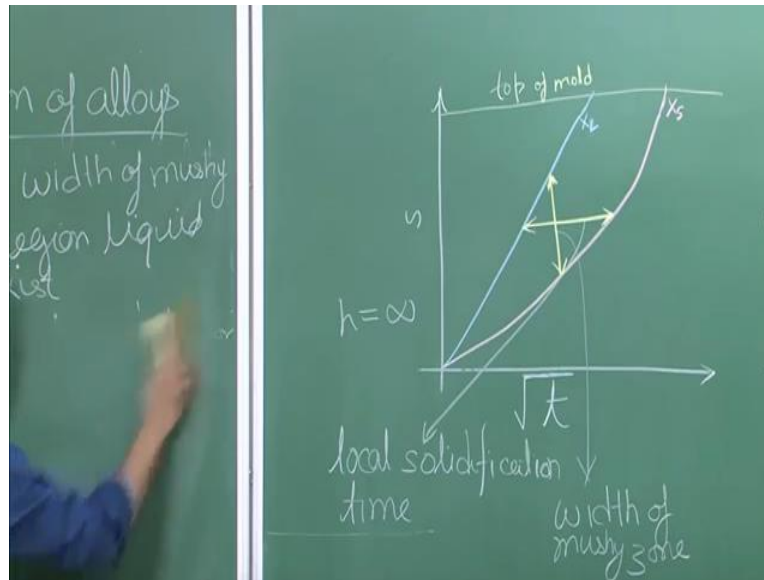 n of alloys
width of mushy
egion liquid
xist
or
top of mold
x_L
x_s
s
h = ∞
√t
local solidification
time
width of
mushy zone